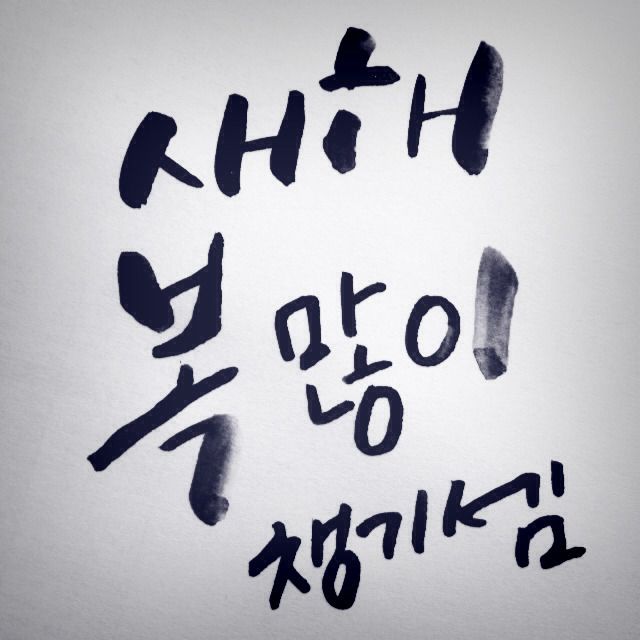 새해
복 많이
챙기셤